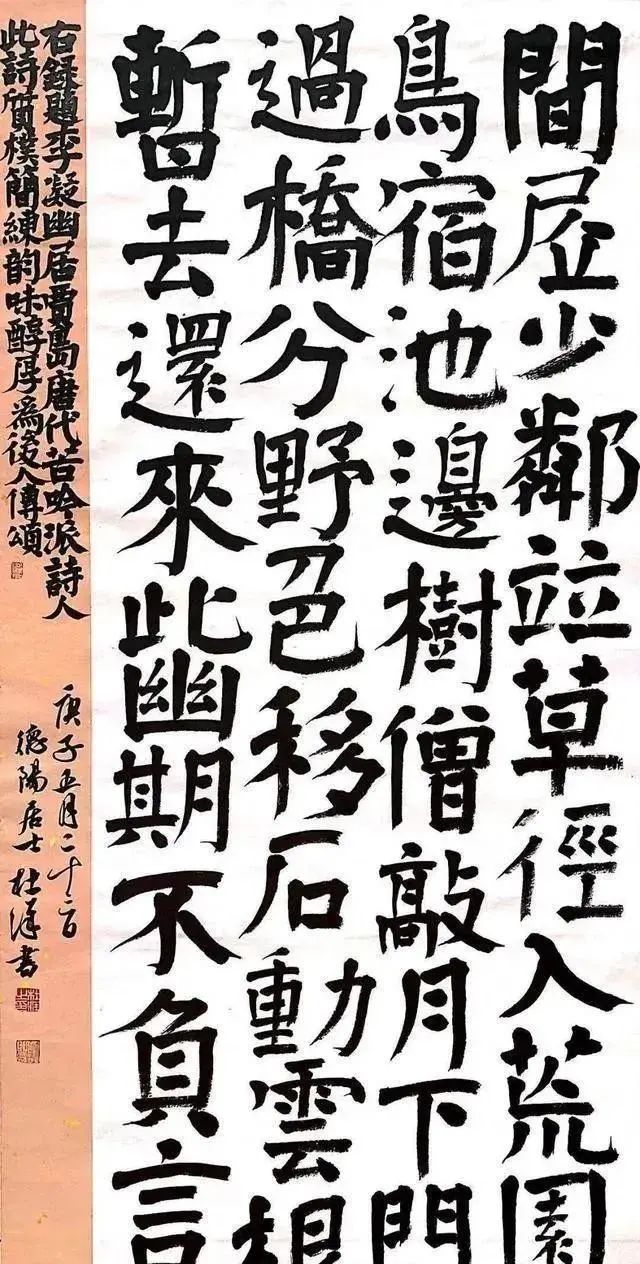 間㞐少鄰竝草徑入荒園
鳥宿池邊樹僧敲月下門
過橋分野色移石動雲根
暫去還來此幽期不負言
右錄題李凝幽居賈島唐代苦吟派詩人
此詩質樸簡練韵味醇厚為後人傳頌
庚子五月二十
德陽居士杜書